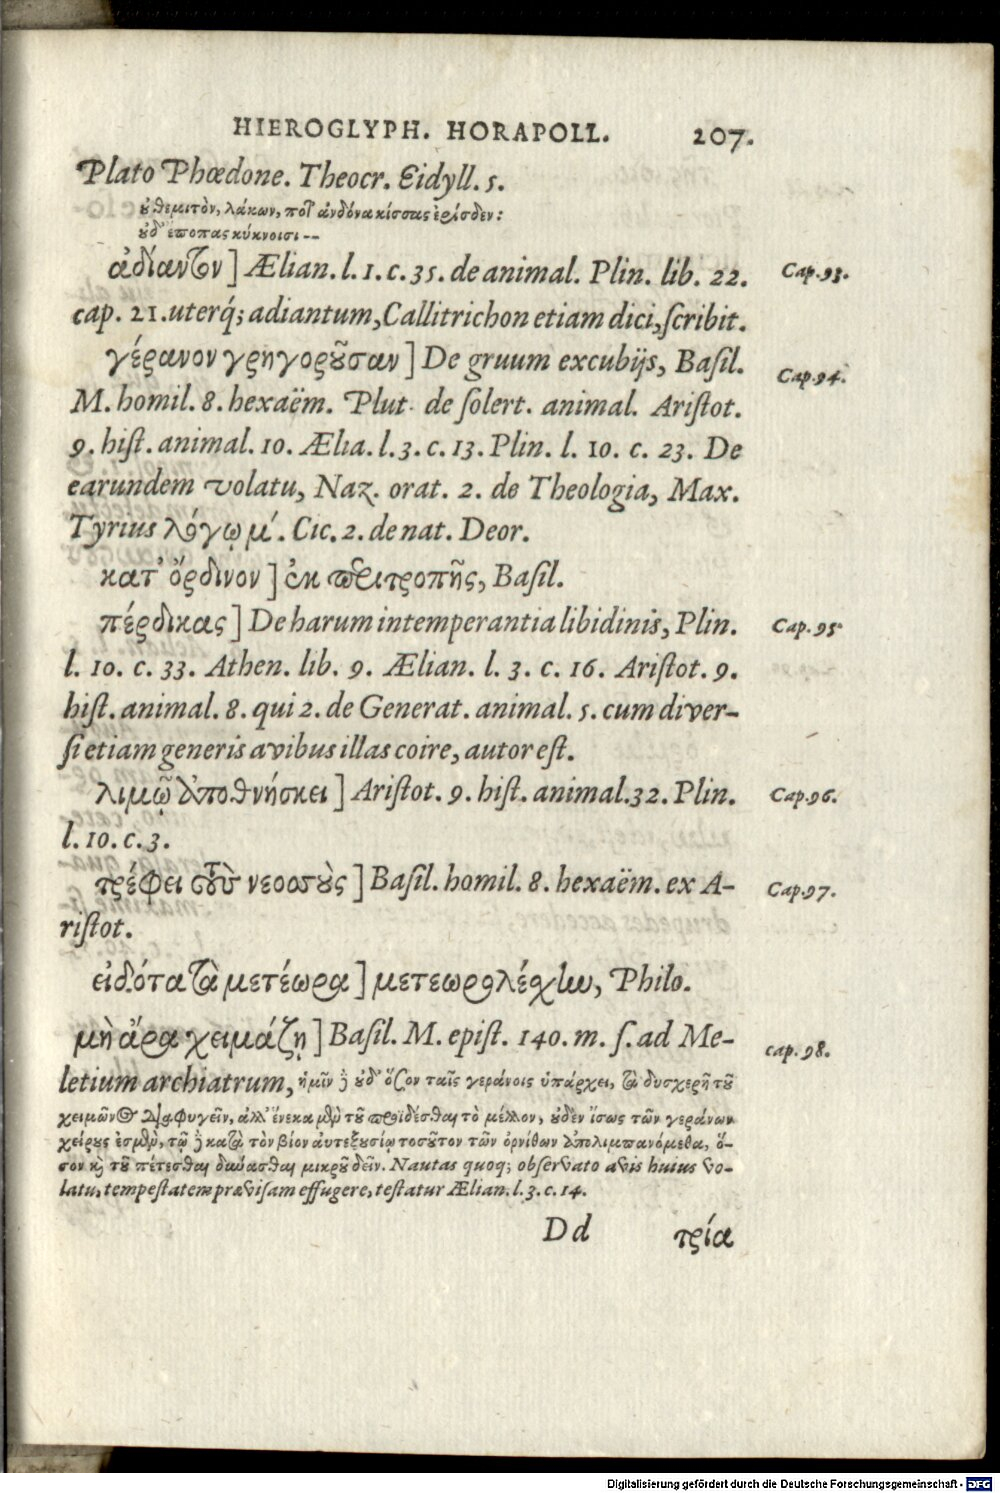 HIEROGLYPH. HORAPOLL. 207.
Plato Phœdone. Theocr. Eidyll. 5.
οὐ θεμιτὸν, λάκων, ποτ' ἀηδόνα κίσσας ἐρίσδεν:
οὐδ' ἔποπας κύκνοισι --
ἀδίαντον] Ælian. l. 1. c. 35. de animal. Plin. lib. 22. Cap. 93.
cap. 21. uterq; adiantum, Callitrichon etiam dici, ſcribit.
γέρανον γρηγοροῦσαν] De gruum excubijs, Baſil. Cap. 94.
M. homil. 8. hexaëm. Plut. de ſolert. animal. Ariſtot.
9. hiſt. animal. 10. Ælia. l. 3. c. 13. Plin. l. 10. c. 23. De
earundem volatu, Naz. orat. 2. de Theologia, Max.
Tyrius λόγῳ μ´. Cic. 2. de nat. Deor.
κατ' ὄρδινον] ἐκ περιτροπῆς, Baſil.
πέρδικας] De harum intemperantia libidinis, Plin. Cap. 95.
l. 10. c. 33. Athen. lib. 9. Ælian. l. 3. c. 16. Ariſtot. 9.
hiſt. animal. 8. qui 2. de Generat. animal. 5. cum diver-
ſi etiam generis avibus illas coire, autor eſt.
λιμῷ ἀποθνήσκει] Ariſtot. 9. hiſt. animal. 32. Plin. Cap. 96.
l. 10. c. 3.
τρέφει τοὺς νεοσσοὺς] Baſil. homil. 8. hexaëm. ex A- Cap. 97.
riſtot.
εἰδότα τὰ μετέωρα] μετεωρολέσχην, Philo.
μὴ ἄρα χειμάζῃ] Baſil. M. epiſt. 140. m. ſ. ad Me- cap. 98.
letium archiatrum, ἡμῖν δὲ οὐδ' ὅσον ταῖς γεράνοις ὑπάρχει, τὰ δυσχερῆ τοῦ
χειμῶνος διαφυγεῖν, ἀλλ' ἕνεκα μὲν τοῦ προϊδέσθαι τὸ μέλλον, οὐδὲν ἴσως τῶν γεράνων
χείρους ἐσμὲν, τῷ δὲ κατὰ τὸν βίον αὐτεξουσίῳ τοσοῦτον τῶν ὀρνίθων ἀπολιμπανόμεθα, ὅ-
σον καὶ τοῦ πέτεσθαι δύνασθαι μικροῦ δεῖν. Nautas quoq; obſervato avis huius vo-
latu, tempeſtatem præviſam effugere, teſtatur Ælian. l. 3. c. 14.
Dd τρία
Digitalisierung gefördert durch die Deutsche Forschungsgemeinschaft - DFG